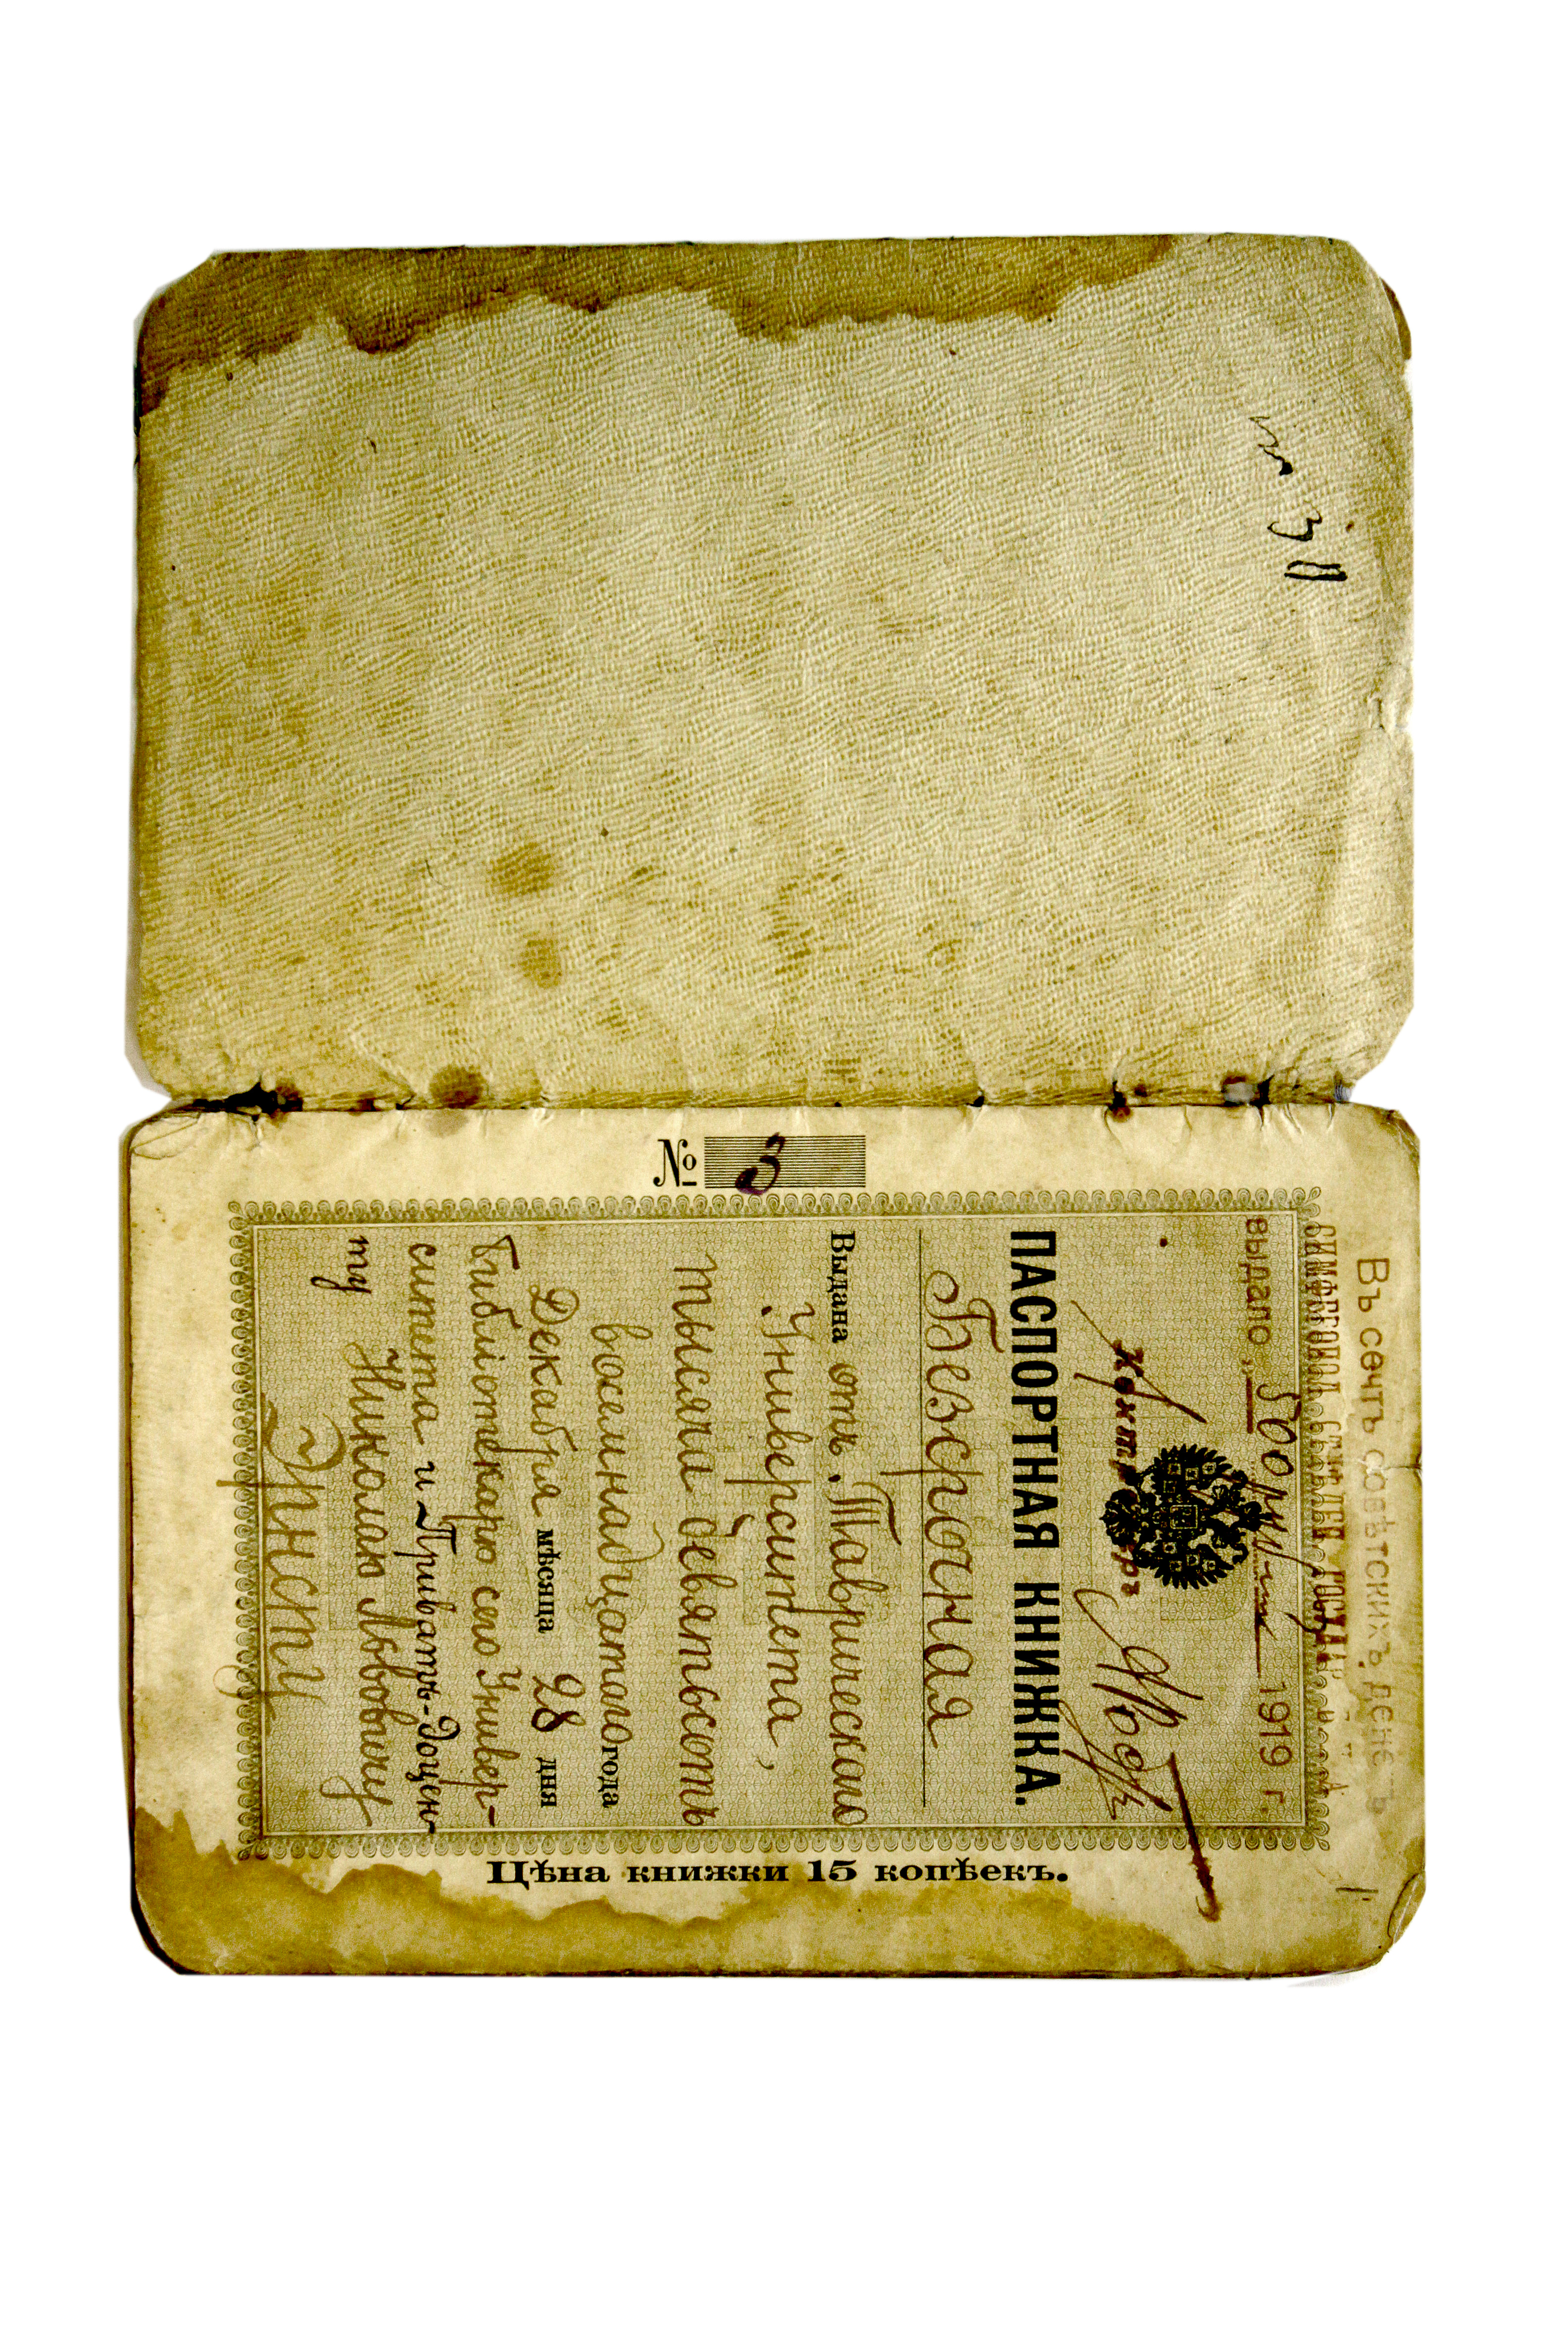 № 3
Въ счетъ совѣтскихъ денегъ
выдало „ 500 рублей 1919 г.
Контролеръ
ПАСПОРТНАЯ КНИЖКА.
Безсрочная
Выдана отъ Таврическаго
Университета,
тысяча девятьсотъ
восемнадцатаго года
Декабря мѣсяца 28 дня
Библіотекарю сего Универ-
ситета и Приватъ-Доцен-
ту Николаю Львовичу
Эрнсту
Цѣна книжки 15 копѣекъ.